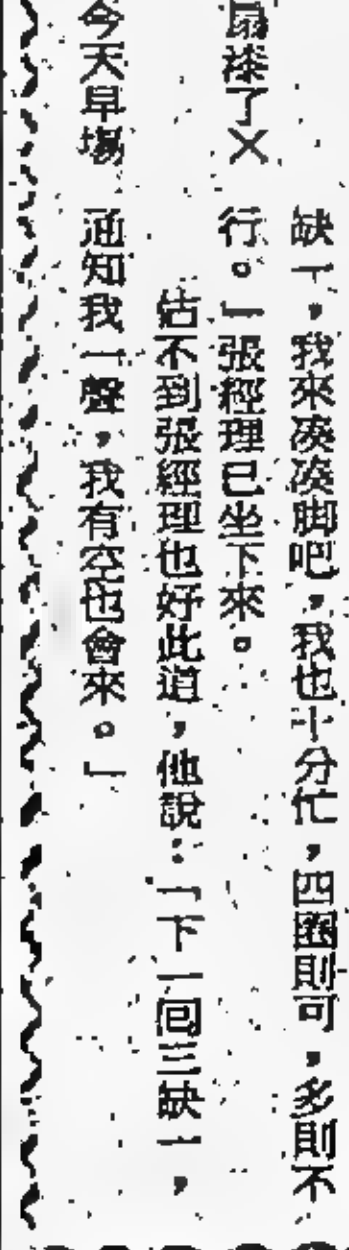 缺一，我來湊湊脚吧，我也十分忙，四圈則可，多則不
行。」張經理已坐下來。
估不到張經理也好此道，他說：「下一回三缺一，
通知我一聲，我有空也會來。」
了×
今天早場